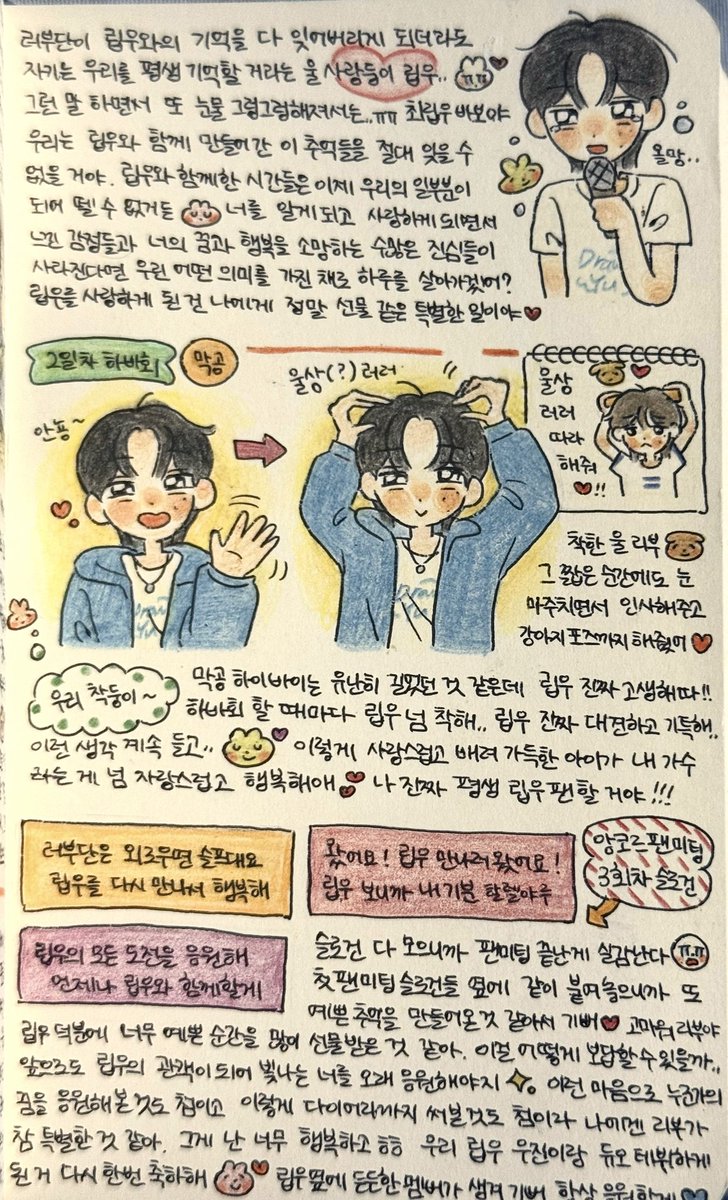 러부단이 립우와의 기억을 다 잊어버리게 되더라도
자키는 우리를 평생 기억할 거라는 울 사랑둥이 립우..
ㅠㅠ
그런 말 하면서 또 눈물 그렁그렁해져서는..ㅠㅠ 최립우 바보야
우리는 립우와 함께 만들어간 이 추억들을 절대 잊을 수
없을 거야. 립우와 함께한 시간들은 이제 우리의 일부분이
되어 뗄 수 없거든 너를 알게 되고 사랑하게 되면서
느낀 감정들과 너의 꿈과 행복을 소망하는 수많은 진심들이
사라진다면 우린 어떤 의미를 가진 채로 하루를 살아가겠어?
립우를 사랑하게 된 건 나에게 정말 선물 같은 특별한 일이야
울망..
2일차 하바회
막공
안뇽~
울상(?) 러러
울상
러러
따라
해줘
!!
착한 울 리부
그 짧은 순간에도 눈
마주치면서 인사해주고
강아지포즈까지 해줬어
우리 착둥이~
막공 하이바이는 유난히 길었던 것 같은데 립우 진짜 고생해따!!
하바회 할 때마다 립우 넘 착해.. 립우 진짜 대견하고 기특해..
이런 생각 계속 들고.. 이렇게 사랑스럽고 배려 가득한 아이가 내 가수
라는 게 넘 자랑스럽고 행복해애 나 진짜 평생 립우팬할 거야!!!
러부단은 외로우면 슬프대요
립우를 다시 만나서 행복해
왔어요! 립우 만나러 왔어요!
립우 보니까 내 기분 할렐야루
앙코르팬미팅
3회차 슬로건
립우의 모든 도전을 응원해
언제나 립우와 함께할게
슬로건 다 모으니까 팬미팅 끝난게 실감난다 ㅠ.ㅠ
첫 팬미팅 슬로건들 옆에 같이 붙여놓으니까 또
예쁜 추억을 만들어온 것 같아서 기뻐 고마워 리부야
립우 덕분에 너무 예쁜 순간을 많이 선물받은 것 같아. 이걸 어떻게 보답할 수 있을까..
앞으로도 립우의 관객이 되어 빛나는 너를 오래 응원해야지 이런 마음으로 누군가의
꿈을 응원해본 것도 첨이고 이렇게 다이어리까지 써볼 것도 첨이라 나에겐 리부가
참 특별한 것 같아. 그게 난 너무 행복하고 ㅎㅎ 우리 립우 우진이랑 듀오 데뷔하게
된 거 다시 한번 축하해 립우 옆에 든든한 멤버가 생겨 기뻐 항상 응원할게